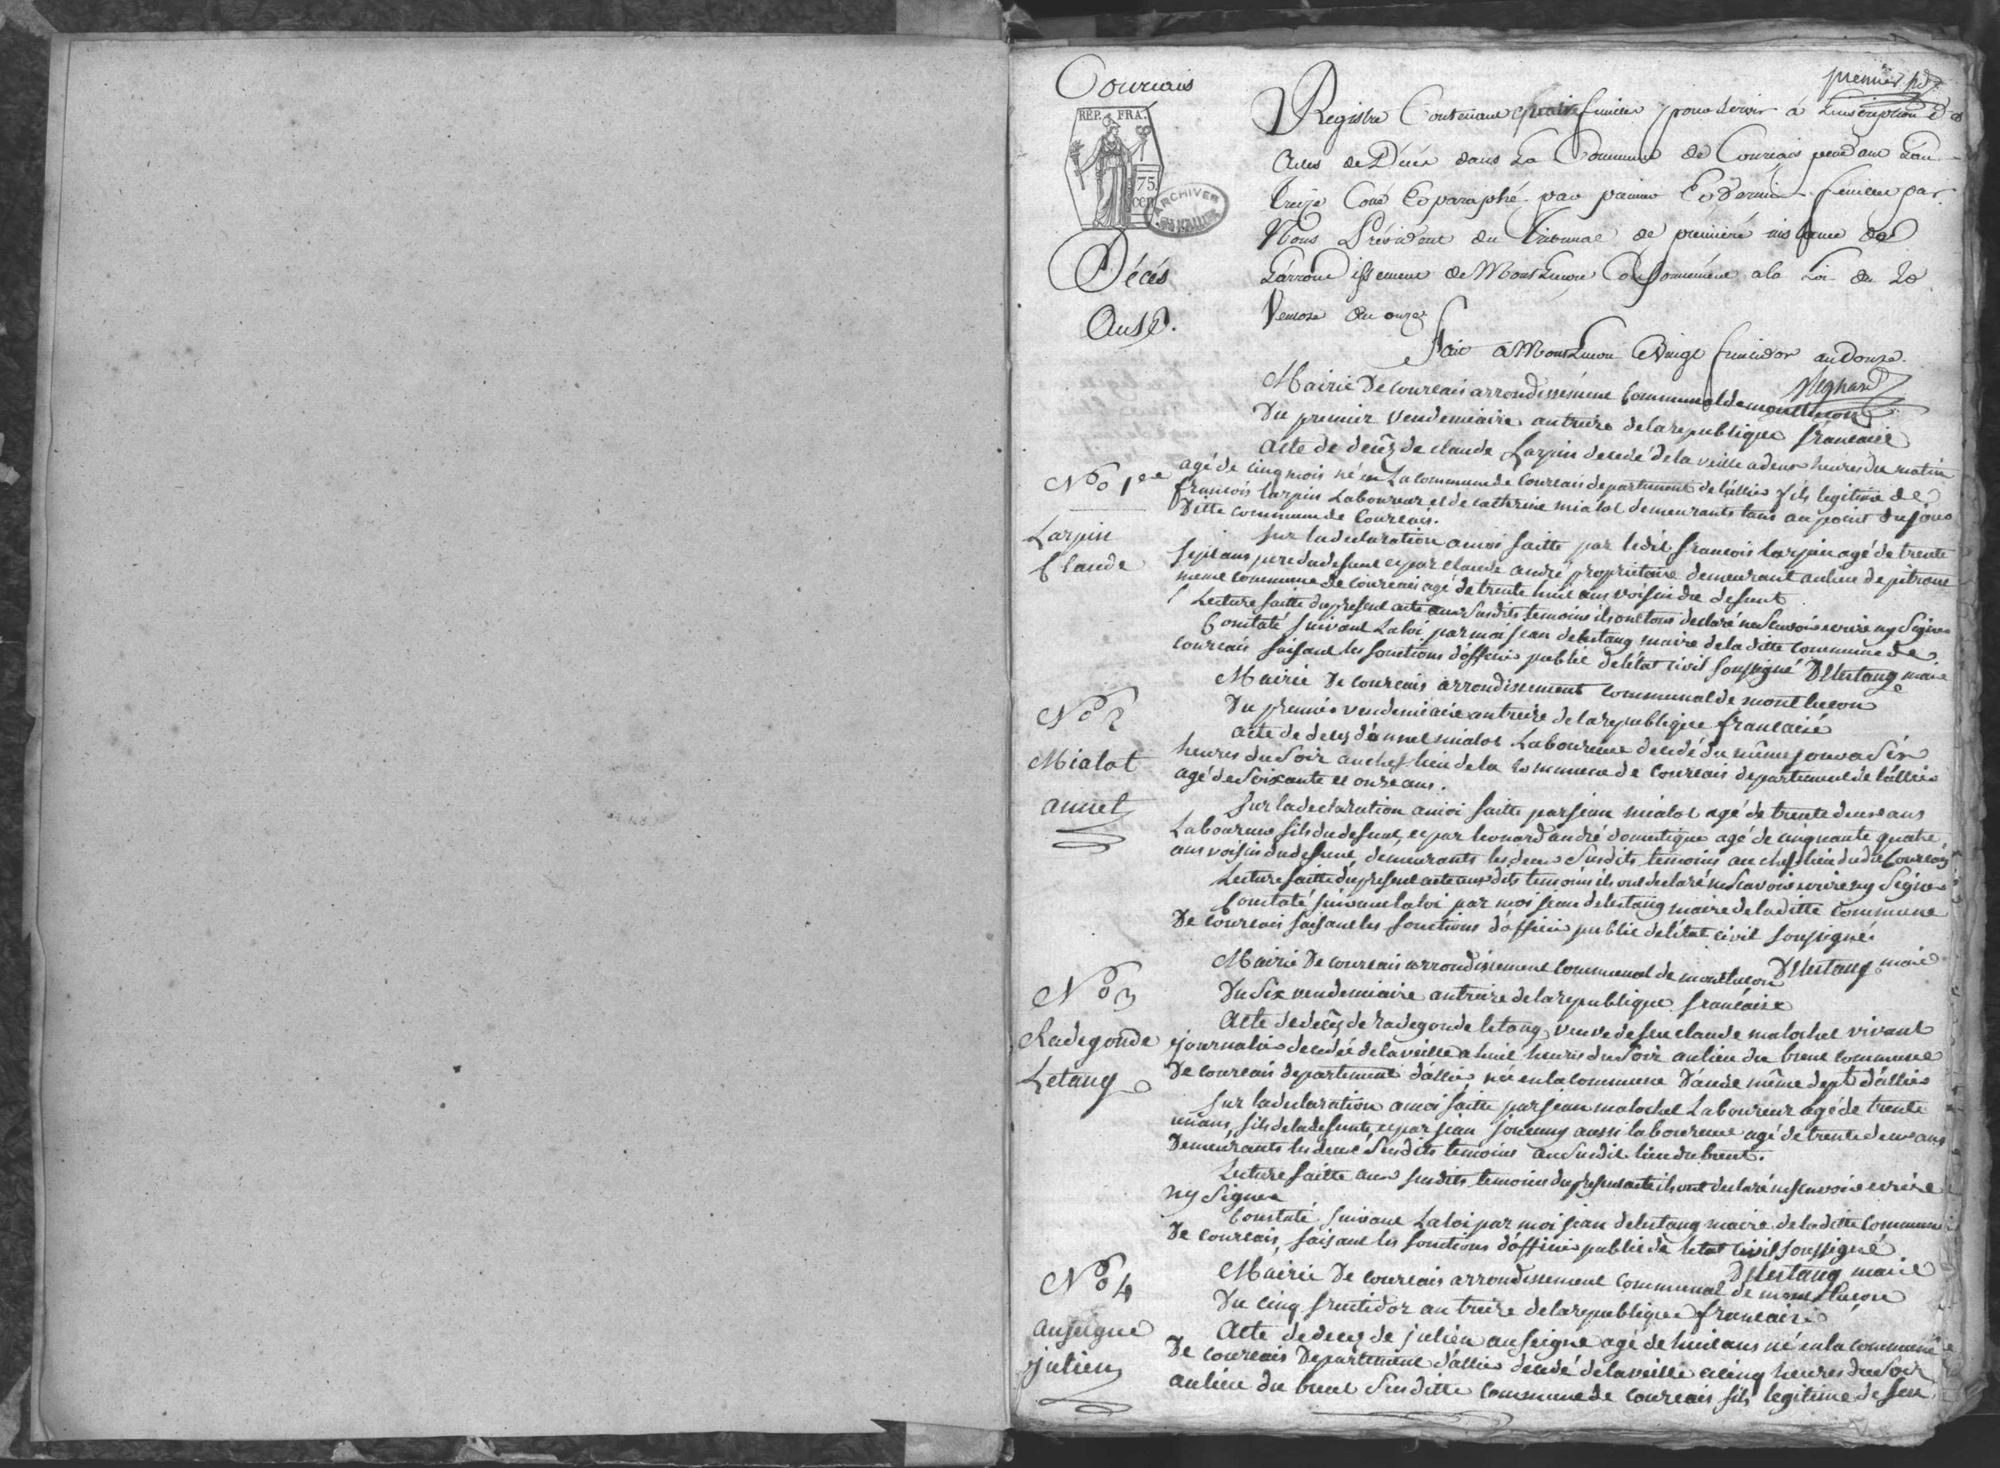 Courçais
premier p.
REP. FRA.
75
cen
ARCHIVES
Décés
An 13.
Registre Contenant quatre feuilles pour servir à L'inscription des
Actes de Décés dans La Commune de Courçais pendant L'an
treize Coté Et paraphé par premier Et Dernier feuillet par
Nous Président du Tribunal de première instance de
L'arrondissement de MontLuçon Conformément a la Loi du 20
Ventose an onze
Fait à MontLuçon Le Vingt fructidor an Douze.
Regnard
Mairie De courcais arrondissement communal de montlucon
Du premier vendemiaire an treize de la republique francaise
N.o 1er
Larpin
Claude
Acte de decês de claude Larpin decedé de la veille a deux heures du matin
agé de cinq mois né en La commune de courcais departement de l'allier fils legitime de
francois larpin Laboureur et de catherine mialot demeurants tous au point du jour
Ditte commune de Courcais.
Sur la declaration a moi faitte par ledit francois larpin agé de trente
sept ans pere du defunt et par claude andré proprietaire demeurant au lieu de
meme commune de courcais agé de trente huit ans voisin du defunt
Lecture faitte du present acte aux susdits temoins ils ont tous declaré ne scavoir ecrire ny signer
Constaté suivant La loi par moi jean delestang maire de la ditte commune de
courcais faisant les fonctions d'officier public de l'état civil soussigné Delestang maire
Mairie De courcais arrondissement communal de montlucon
Du premier vendemiaire an treize de la republique francaise
N.o 2
Mialot
annet
acte de decés d'annet mialot Laboureur decedé du même jour a six
heures du soir au chef lieu de la commune de courcais departement de l'allier
agé de soixante et onze ans.
Sur la declaration a moi faitte par jean mialot agé de trente deux ans
Laboureur fils du defunt, et par leonard andré domestique agé de cinquante quatre
ans voisin du defunt, demeurants les deux susdits temoins au chef lieu du dit Courcais
Lecture faitte du present acte aux dits temoins ils ont declaré ne scavoir ecrire ny signer
Constaté suivant la loi par moi jean delestang maire de la ditte commune
De courcais faisant les fonctions d'officier public de l'état civil soussigné.
Delestang maire
Mairie De courcais arrondissement communal de montlucon
Du six vendemiaire an treize de la republique francaise
N.o 3
Radegonde
Letang
Acte de decês de radegonde letang veuve de feu claude malochet vivant
journalier decedée de la veille a huit heures du soir au lieu du breut commune
De courcais departement d'allier née en la commune D'aude même dept d'allier
Sur la declaration a moi faitte par jean malochet Laboureur agé de trente
un ans, fils de la defunte, et par jean aussi laboureur agé de trente deux ans
Demeurants les deux susdits temoins au susdit lieu du breut.
Lecture faitte aux susdits temoins du present acte ils ont declaré ne scavoir ecrire
ny signer
Constaté suivant La loi par moi jean delestang maire de la ditte commune
De courcais, faisant les fonctions d'officier public de l'etat civil soussigné
Delestang maire
Mairie De courcais arrondissement communal de montlucon
Du cinq fructidor an treize de la republique francaise
N.o 4
auseigne
julien
Acte de deces de julien auseigne agé de huit ans né en la commune
De courcais Departement d'allier decedé de la veille a cinq heures du soir
au lieu du breut susditte commune de courcais fils legitime de feu